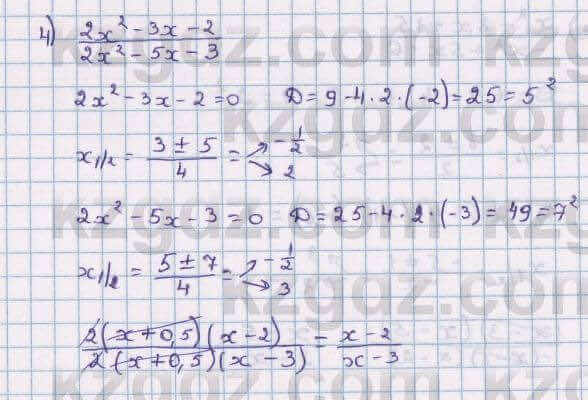 4) (2x² - 3x - 2)/(2x² - 5x - 3)
2x² - 3x - 2 = 0 D = 9 - 4 · 2 · (-2) = 25 = 5²
x₁/₂ = (3 ± 5)/4 = ↗ -1/2 ↘ 2
2x² - 5x - 3 = 0 D = 25 - 4 · 2 · (-3) = 49 = 7²
x₁/₂ = (5 ± 7)/4 = ↗ -1/2 ↘ 3
2(x + 0,5)(x - 2)/2(x + 0,5)(x - 3) = (x - 2)/(x - 3)
kzgdz.com